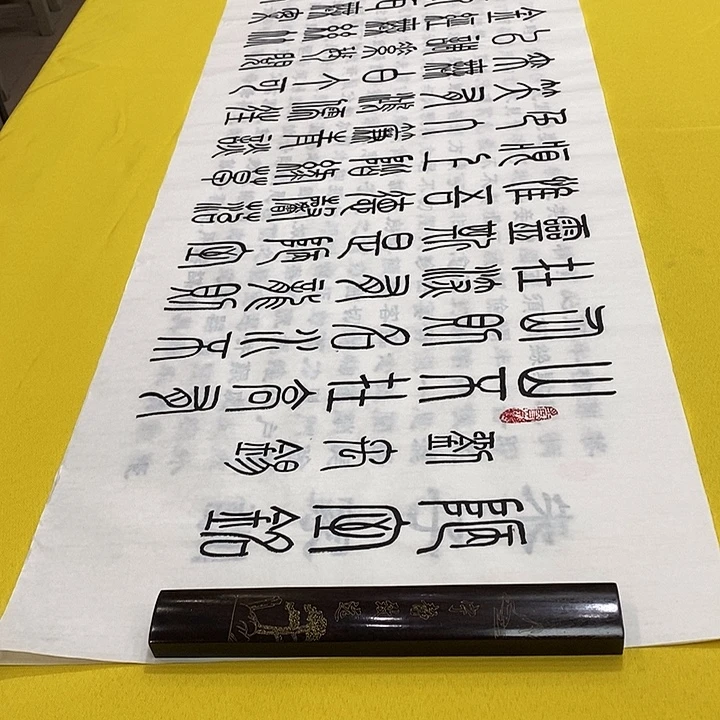 陋室銘
劉禹錫
山不在高有
仙則名水不
在深有龍則
靈斯是陋室
惟吾德馨苔
痕上階綠草
色入簾青談
笑有鴻儒往
來無白丁可
以調素琴閱
金經無絲竹